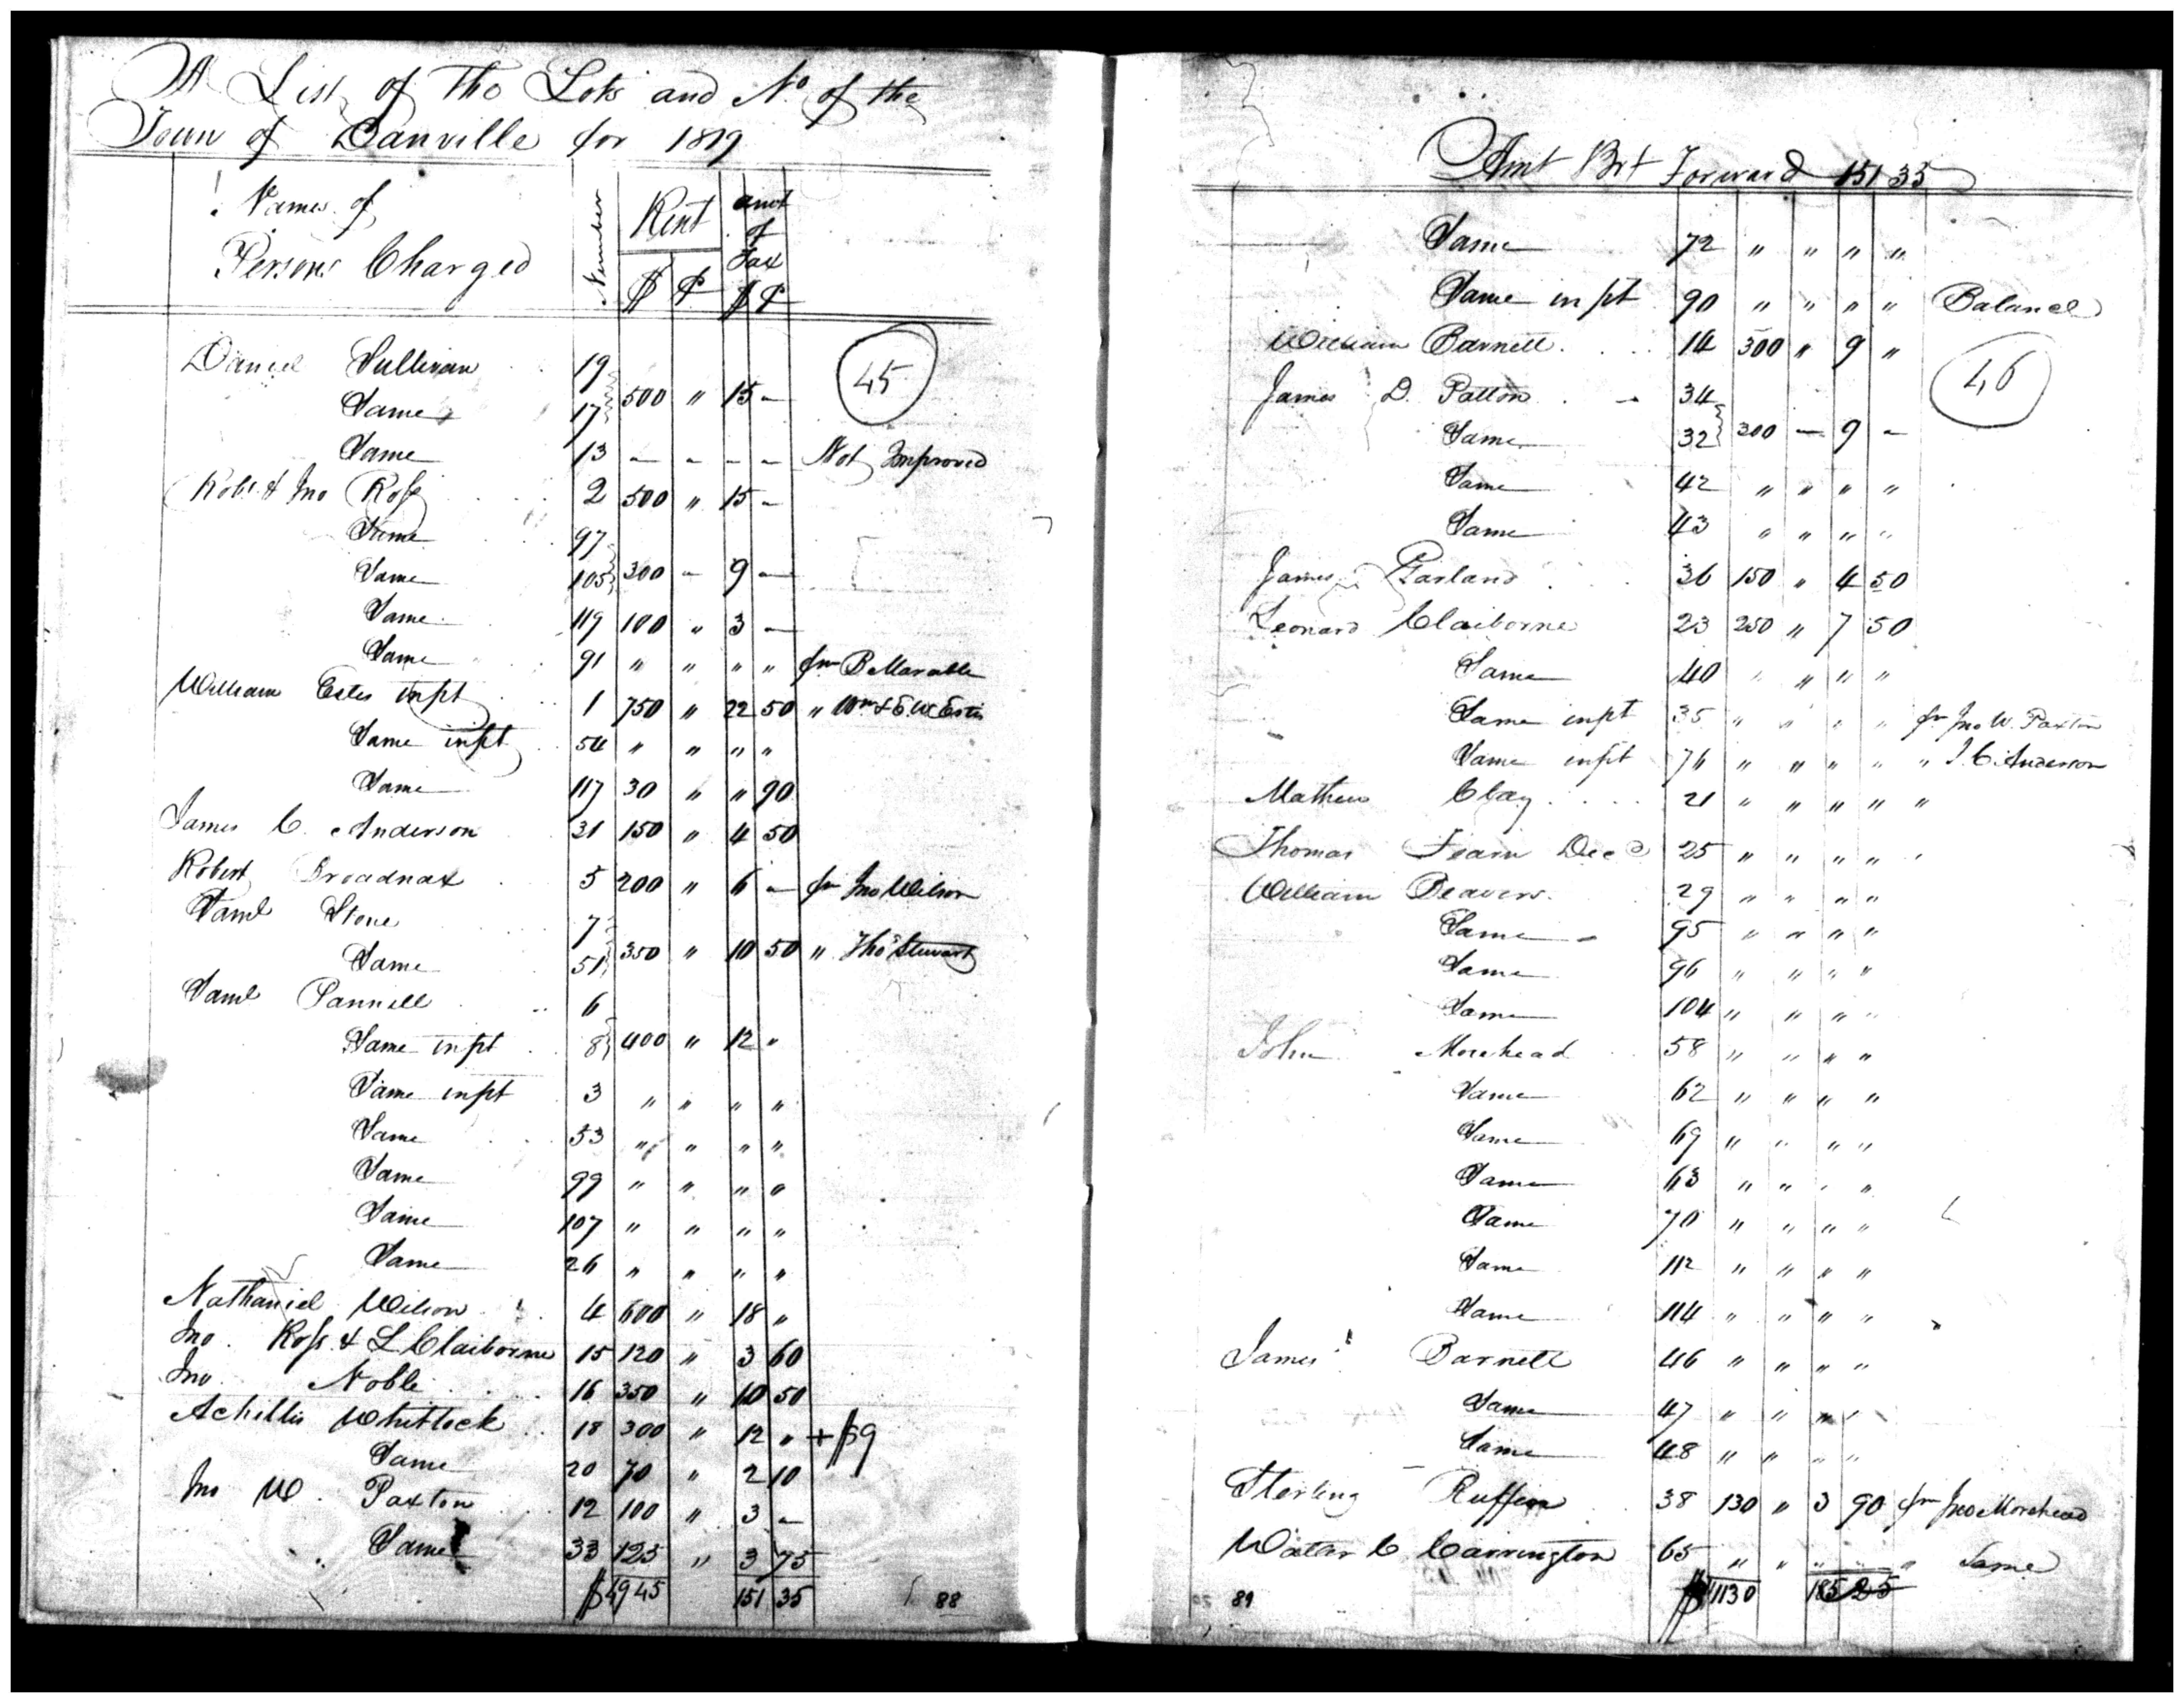 A List of the Lots and No. of the
Town of Danville for 1819
Names of
Persons Charged
Number
Rent
amt of Tax
$ ¢ $ ¢
Daniel Sullivan 19
45
Same 17 500 " 15 -
Same 13 - - - - Not Improved
Robt & Jno Ross 2 500 " 15 -
Same 97
Same 105 300 - 9 -
Same 119 100 " 3 -
Same 91 " " " " fm B Marable
William Estes in pt 1 750 " 22 50 " Wm & E. W. Estes
Same in pt 54 " " " "
Same 117 30 " " 90
James C. Anderson 31 150 " 4 50
Robert Broadnax 5 200 " 6 - fm Jno Wilson
Saml Stone 7
Same 51 350 " 10 50 " Tho Stewart
Saml Pannill 6
Same in pt 8 400 " 12 "
Same in pt 3 " " " "
Same 53 " " " "
Same 99 " " " "
Same 107 " " " "
Same 26 " " " "
Nathaniel Wilson 4 600 " 18 "
Jno Ross & L Claiborne 15 120 " 3 60
Jno Noble 16 350 " 10 50
Achillis Whitlock 18 300 " 12 " + $9
Same 20 70 " 2 10
Jno W. Paxton 12 100 " 3 -
Same 33 125 " 3 75
$4945 151 35
88
Amt Brt Forward 151 35
Same 72 " " " "
Same in pt 90 " " " " Balance
William Barnett 14 300 " 9 "
46
James D. Patton 34
Same 32 300 - 9 -
Same 42 " " " "
Same 43 " " " "
James Garland 36 150 " 4 50
Leonard Claiborne 23 250 " 7 50
Same 40 " " " "
Same in pt 35 " " " " fm Jno W. Paxton
Same in pt 76 " " " " " J. C. Anderson
Mathew Clay 21 " " " " "
Thomas Fearn Decd 25 " " " "
William Beavers 29 " " " "
Same 95 " " " "
Same 96 " " " "
Same 104 " " " "
John Morehead 58 " " " "
Same 62 " " " "
Same 69 " " " "
Same 63 " " " "
Same 70 " " " "
Same 112 " " " "
Same 114 " " " "
James Barnett 46 " " " "
Same 47 " " " "
Same 48 " " " "
Sterling Ruffin 38 130 " 3 90 fm Jno Morehead
Watar C Carrington 65 " " " " " Same
$1130 185 25
89